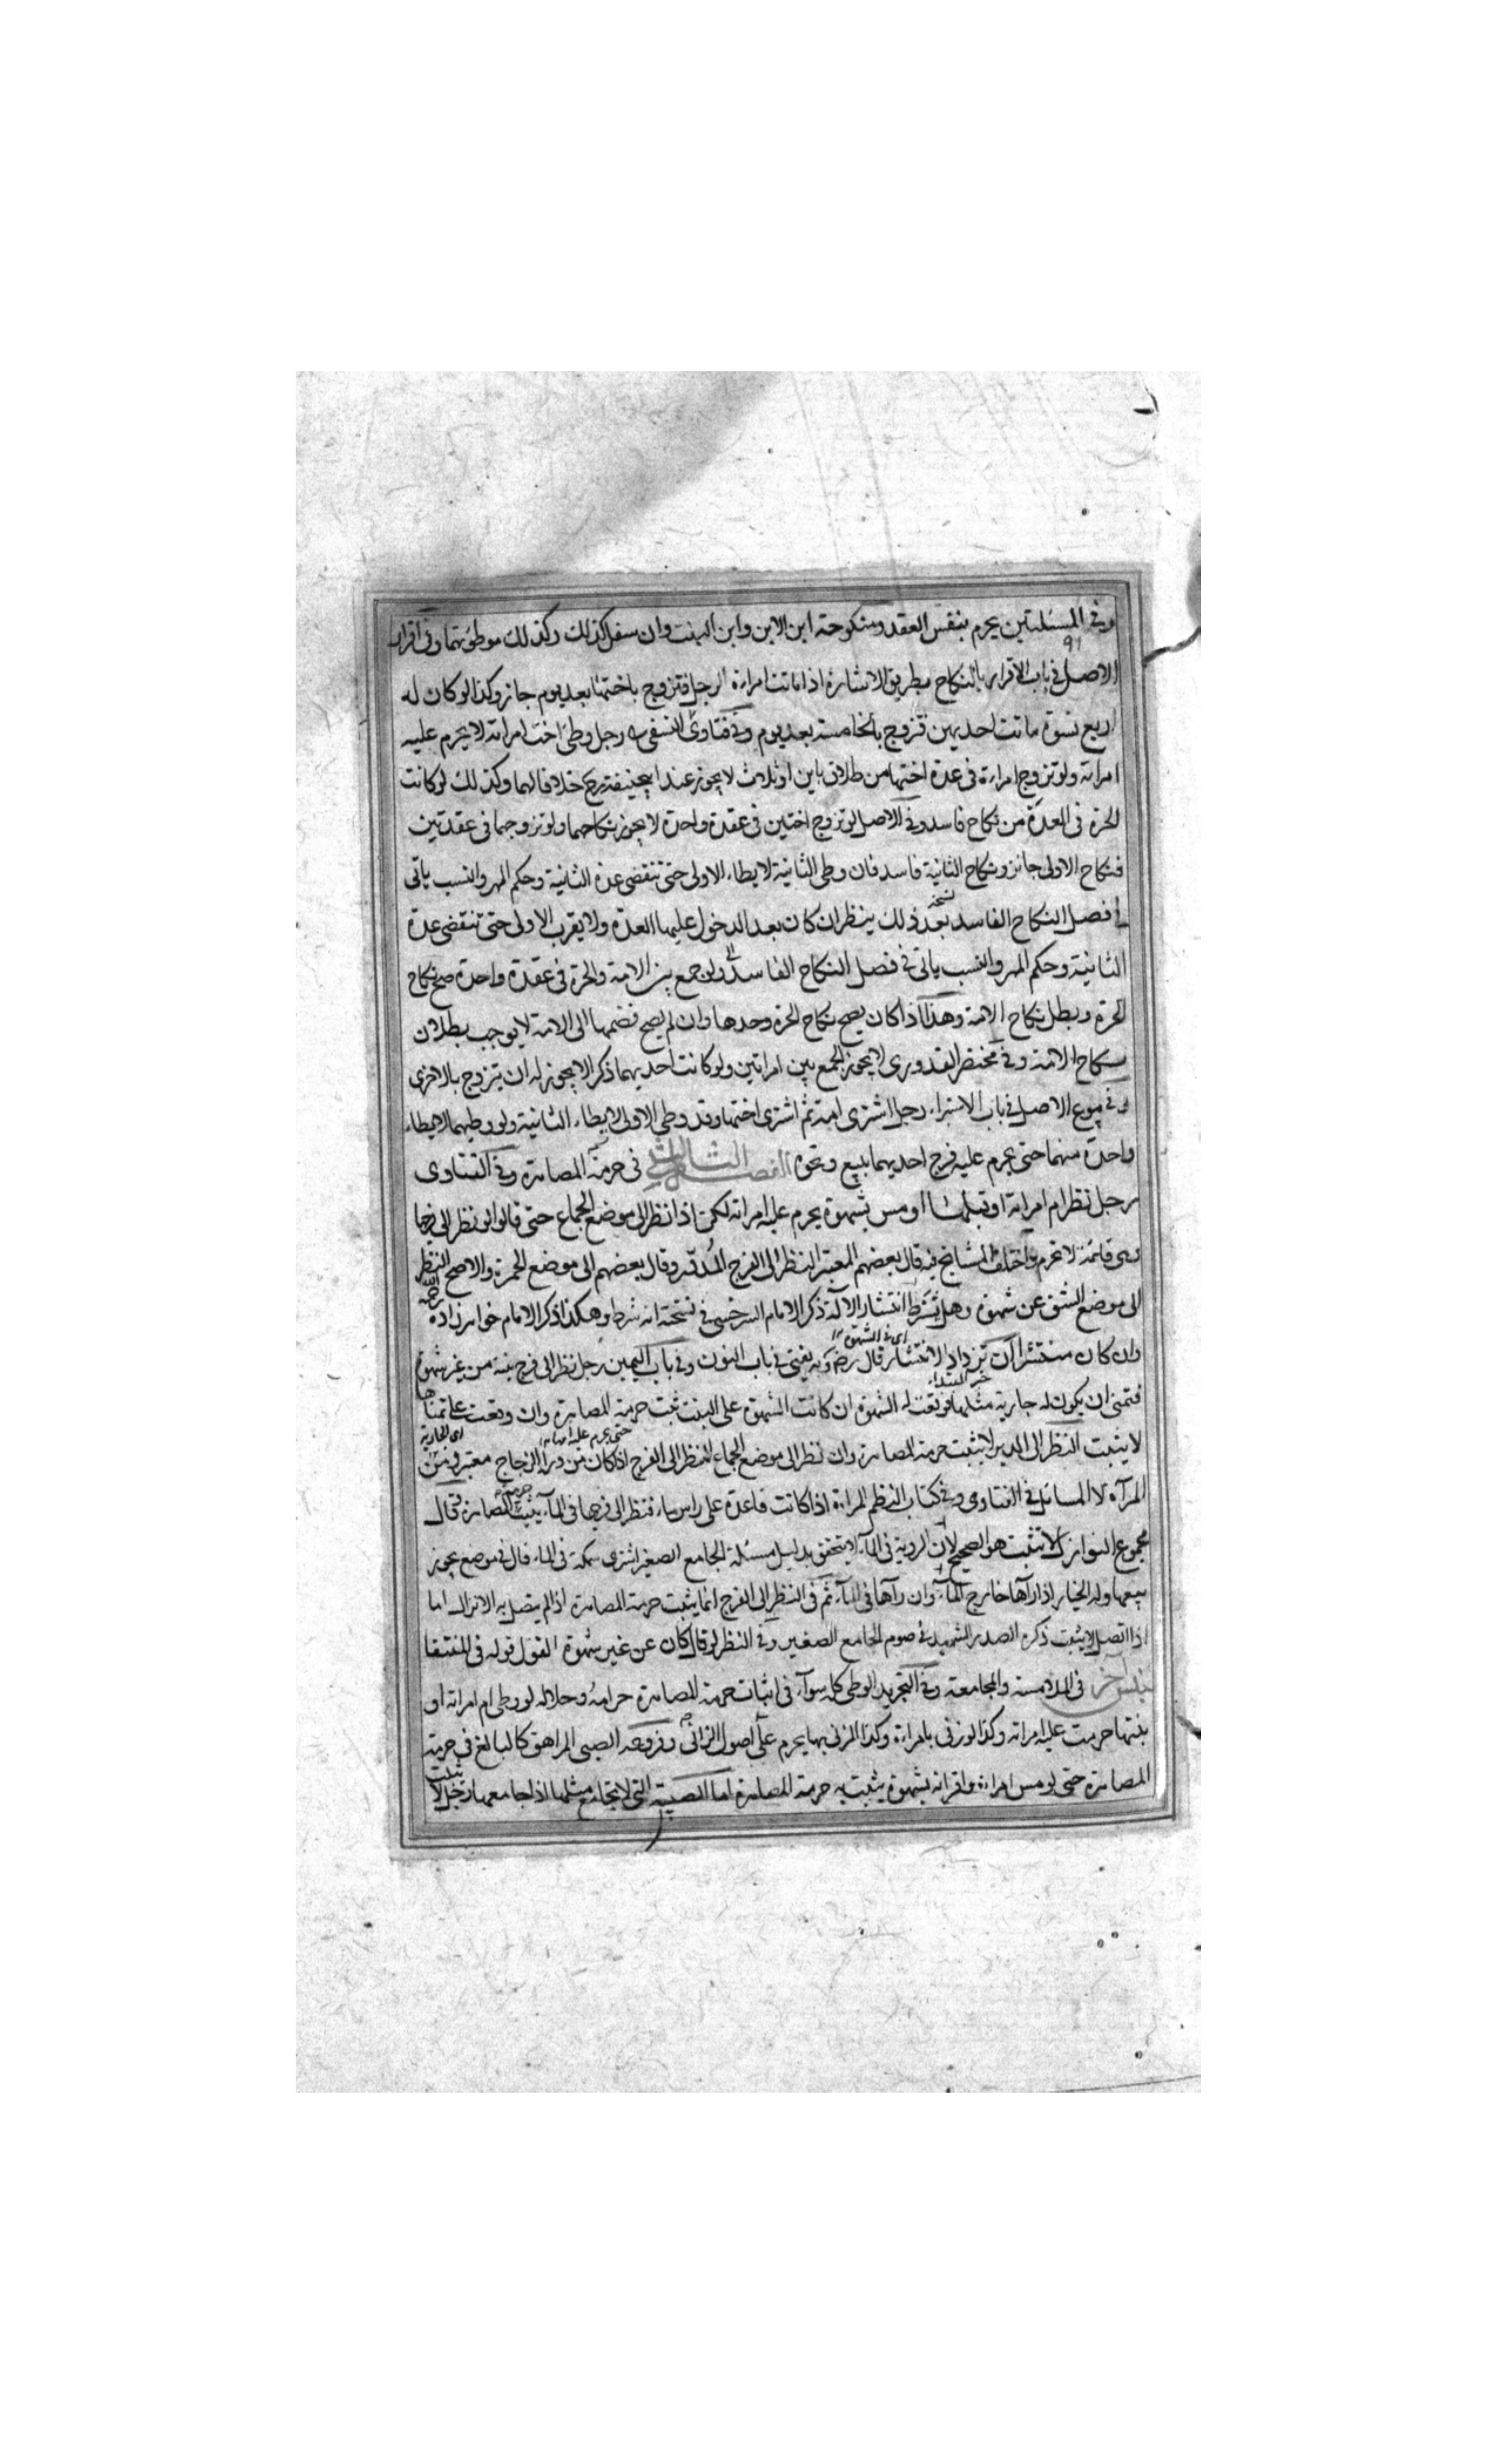 وفي المسئلتين يحرم بنفس العقد ومنكوحته ابن الابن وابن البنت وان سفل كذلك وكذلك موطوئتهما وفي اقرار
٩١
الاصل في باب الاقرار بالنكاح بطريق الاشارة اذا ماتت امراءة الرجل فتزوج باختها بعد يوم جاز وكذا لو كان له
اربع نسوة ماتت احديهن فتزوج بالخامسة بعد يوم وفي فتاوى النسفي رجل وطئ اخت امراته لا يحرم عليه
امراته ولو تزوج امراءة في عدة اختها من طلاق باين او ثلاث لا يجوز عند ابيحنيفة رح خلافا لهما وكذلك لو كانت
الحرة في العدة من نكاح فاسد وفي الاصل لو تزوج اختين في عقدة واحدة لا يجوز نكاحهما ولو تزوجهما في عقدتين
فنكاح الاولى جائز ونكاح الثانية فاسد فان وطئ الثانية لا يطاء الاولى حتى تنقضي عدة الثانية وحكم المهر والنسب ياتى
في فصل النكاح الفاسد بعد ذلك ينظر ان كان بعد الدخول عليها العدة ولا يقرب الاولى حتى تنقضي عدة
نسخه
الثانية وحكم المهر والنسب ياتى في فصل النكاح الفاسد ولو جمع بين الامة والحرة في عقدة واحدة صح نكاح
الحرة وبطل نكاح الامة وهذا اذا كان يصح نكاح الحرة وحدها وان لم يصح فضمها الى الامة لا يوجب بطلان
نكاح الامة وفي مختصر القدورى لا يجوز الجمع بين امراتين ولو كانت احديهما ذكرا لا يجوز له ان يتزوج بالاخرى
وفي بيوع الاصل في باب الاستبراء رجل اشترى امة ثم اشترى اختها وقد وطئ الاولى لا يطاء الثانية ولو وطيهما لا يطاء
واحدة منهما حتى يحرم عليه فرج احديهما ببيع ونحوه الفصل الثالث في حرمة المصاهرة وفي الفتاوى
رجل نظر ام امراته او قبلها او مس بشهوة يحرم عليه امراته لكن اذا نظر الى موضع الجماع حتى قالوا لو نظر الى فرجها
وهي قائمة لا تحرم واختلف المشايخ فيه قال بعضهم المعتبر النظر الى الفرج المدور وقال بعضهم الى موضع الحمرة والاصح النظر
الى موضع الشق عن شهوة وهل تشترط انتشار الآلة ذكر الامام السرخسي في نسخته انه شرط وهكذا ذكر الامام خواهر زاده
رحمه الله
وان كان منتشرا ان تزداد الانتشار قال رض وبه يفتى في باب النون وفي باب اليمين رجل نظر الى فرج بنته من غير شهوة
اى في الشهوة
فتمنى ان يكون له جارية مثلها فوقعت له الشهوة ان كانت الشهوة على البنت ثبت حرمة المصاهرة وان وقعت على تمناها
خبر المبتداء
لا يثبت النظر الى الدبر لا يثبت حرمة المصاهرة وان نظر الى موضع الجماع النظر الى الفرج اذا كان من وراء الزجاج معتبر وفي
حتى يحرم عليه امراته
اى الجارية
المرآة لا المسائل في الفتاوى وفي كتاب النظم المراءة اذا كانت قاعدة على راس ماء فنظر الى فرجها في الماء يثبت حرمة المصاهرة وقال
مجموع النوازل لا تثبت هو الصحيح لان الروية في الماء لا يتحقق بدليل مسئلة الجامع الصغير اشترى سمكة في الماء قال في موضع يجوز
بيعها وله الخيار اذا رآها خارج الماء وان رآها في الماء ثم في النظر الى الفرج انما يثبت حرمة المصاهرة اذا لم يتصل به الانزال اما
اذا اتصل لا يثبت ذكره الصدر الشهيد في صوم الجامع الصغير وفي النظر لو قال كان عن غير شهوة القول قوله في المنتقا
جنس آخر في الملامسة والمجامعة وفي التجريد الوطى كله سوآء في اثبات حرمة المصاهرة حرامه وحلاله لو وطى ام امراته او
بنتها حرمت عليه امراته وكذا لو زنى بامراءة وكذا المزنى بها يحرم على اصول الزانى وفروعه الصبى المراهق كالبالغ في حرمة
المصاهرة حتى لو مس امراءة واقر انه بشهوة يثبت به حرمة المصاهرة اما الصبية التى لا يجامع مثلها اذا جامعها رجل لا
تثبت